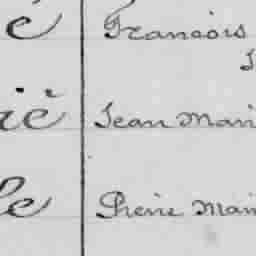 é François
J
ič Jean Mari
le Pierre Mari